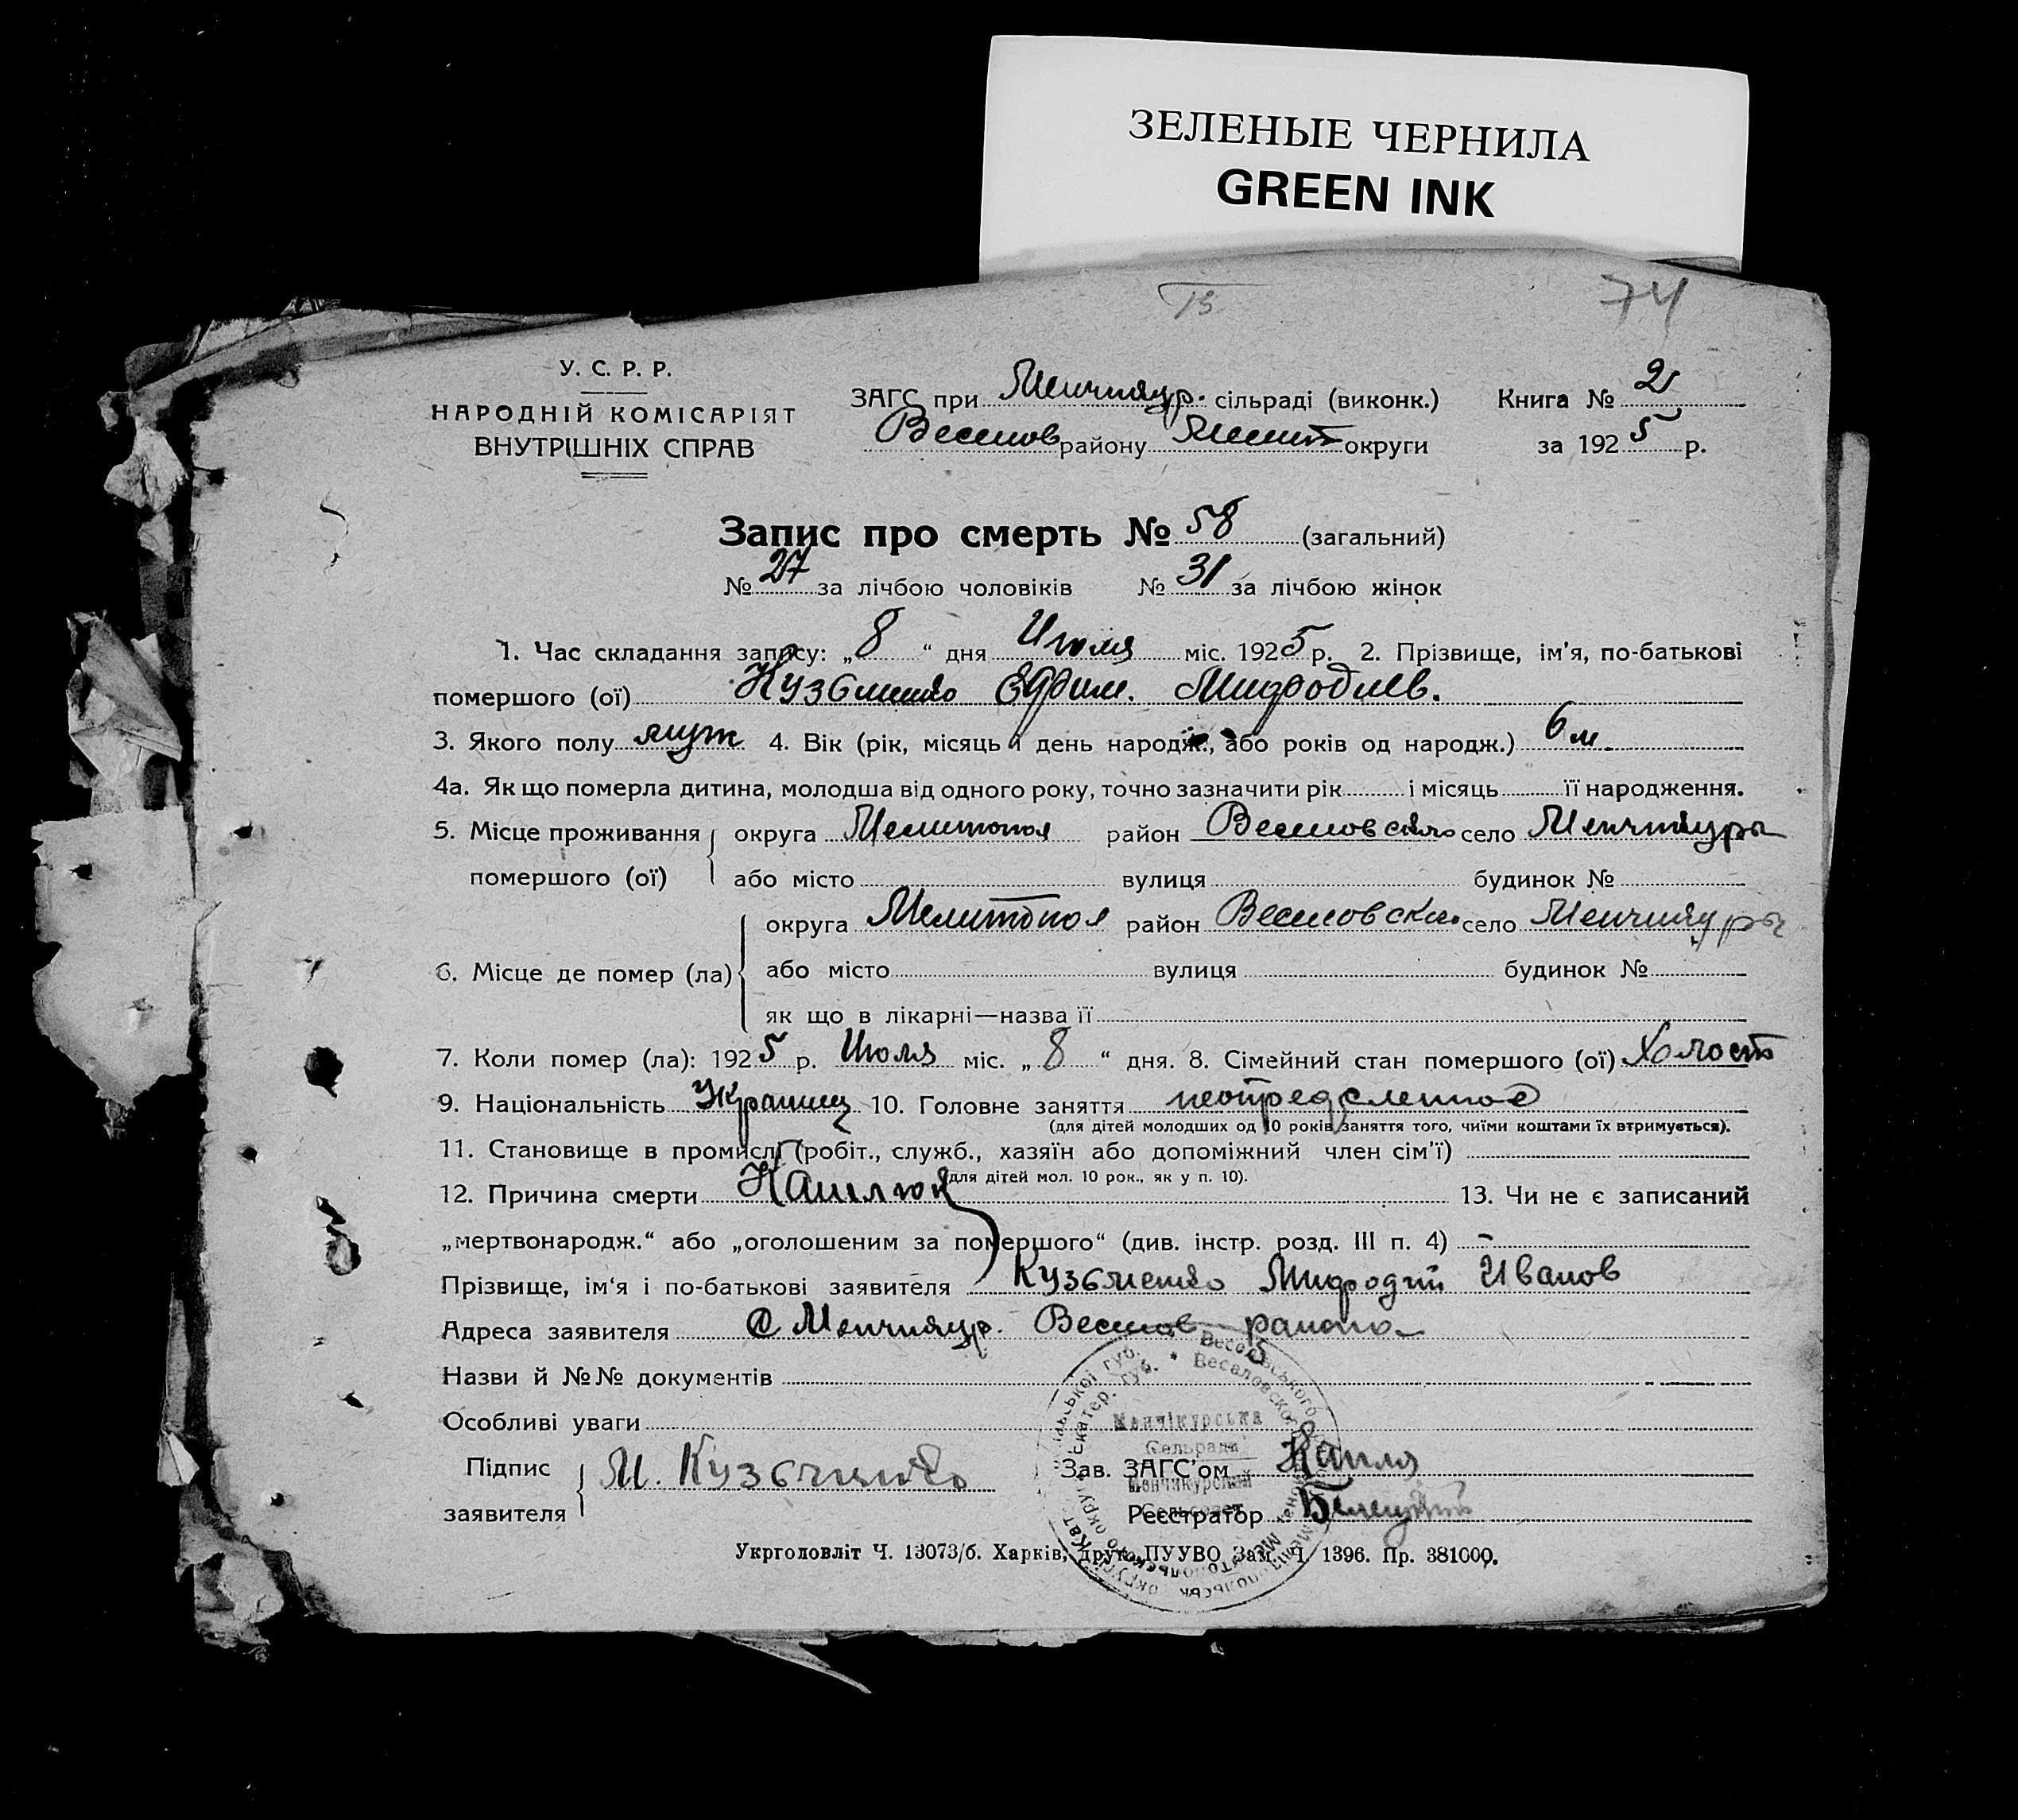 ЗЕЛЕНЫЕ ЧЕРНИЛА
GREEN INK
74
У. С. Р. Р.
НАРОДНІЙ КОМІСАРІЯТ
ВНУТРІШНІХ СПРАВ
ЗАГС при Менчикур. сільраді (виконк.)
Веселов району Мелит округи
Книга № 2
за 1925 р.
Запис про смерть № 58 (загальний)
№ 27 за лічбою чоловіків № 31 за лічбою жінок
1. Час складання запису: „8“ дня Июля міс. 1925 р. 2. Прізвище, ім’я, по-батькові
помершого (ої) Кузьменко Ефим. Мифодиев.
3. Якого полу муж 4. Вік (рік, місяць і день народж., або років од народж.) 6 м.
4а. Як що померла дитина, молодша від одного року, точно зазначити рік і місяць її народження.
5. Місце проживання округа Мелитопол район Веселовского село Менчикуры
помершого (ої) або місто вулиця будинок №
округа Мелитопол район Веселовски. село Менчикуры
6. Місце де помер (ла) або місто вулиця будинок №
як що в лікарні—назва її
7. Коли помер (ла): 1925 р. Июля міс. „8“ дня. 8. Сімейний стан помершого (ої) Холост
9. Національність Украинец 10. Головне заняття неопределенное
(для дітей молодших од 10 років заняття того, чиїми коштами їх втримується).
11. Становище в промислі (робіт., служб., хазяїн або допоміжний член сім’ї)
(для дітей мол. 10 рок., як у п. 10).
12. Причина смерти Кашлюк 13. Чи не є записаний
„мертвонародж.“ або „оголошеним за помершого“ (див. інстр. розд. III п. 4) –
Прізвище, ім‘я і по-батькові заявителя Кузьменко Мифодий Иванов
Адреса заявителя с Менчикур. Веселов района
Назви й №№ документів
Особливі уваги
Менчікурська
Сельрада
Менчикурский
Сельсовет
Підпис
заявителя М. Кузьменко
Зав. ЗАГС’ом Капля
Реєстратор Белецкий
Укрголовліт Ч. 13073/б. Харків, друк. ПУУВО Зам. Ч. 1396. Пр. 381000.